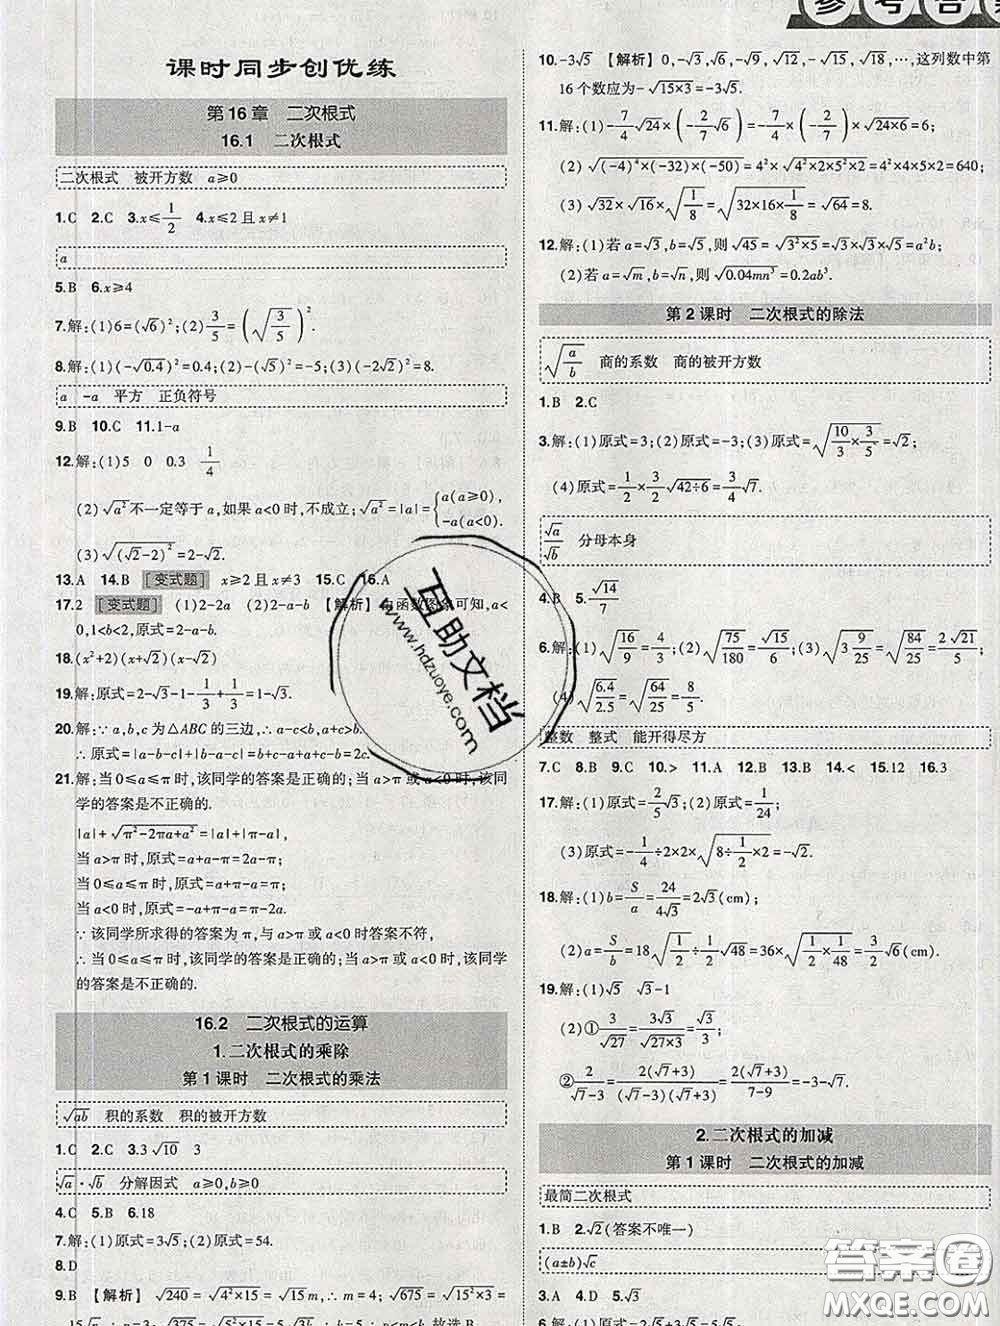 参考答案
课时同步创优练
第16章 二次根式
16.1 二次根式
二次根式 被开方数 a≥0
1.C 2.C 3.x≤1/2 4.x≤2且x≠1
a
5.B 6.x≥4
7.解:(1)6=(√6)²;(2)3/5=(√(3/5))².
8.解:(1)(-√0.4)²=0.4;(2)-(√5)²=-5;(3)(-2√2)²=8.
a -a 平方 正负符号
9.B 10.C 11.1-a
12.解:(1)5 0 0.3 1/4
(2)√a²不一定等于a,如果a<0时,不成立;√a²=|a|={a(a≥0),-a(a<0).
(3)√(√2-2)²=2-√2.
13.A 14.B [变式题] x≥2且x≠3 15.C 16.A
17.2 [变式题] (1)2-2a (2)2-a-b 【解析】由函数图象可知,a<
0,1<b<2,原式=2-a-b.
18.(x²+2)(x+√2)(x-√2)
19.解:原式=2-√3-1-1/3+1/3=1-√3.
20.解:∵a,b,c为△ABC的三边,∴a-c<b,a+c>b.
∴原式=|a-b-c|+|b-a-c|=b+c-a+a+c-b=2c.
21.解:当0≤a≤π时,该同学的答案是正确的;当a>π或a<0时,该同
学的答案是不正确的.
|a|+√(π²-2πa+a²)=|a|+|π-a|,
当a>π时,原式=a+a-π=2a-π;
当0≤a≤π时,原式=a+π-a=π;
当a<0时,原式=-a+π-a=π-2a.
∵该同学所求得的答案为π,与a>π或a<0时答案不符,
∴当0≤a≤π时,该同学的答案是正确的;当a>π或a<0时,该同学
的答案是不正确的.
16.2 二次根式的运算
1.二次根式的乘除
第1课时 二次根式的乘法
√ab 积的系数 积的被开方数
1.C 2.C 3.3√10 3
√a·√b 分解因式 a≥0,b≥0
4.C 5.B 6.18
7.解:(1)原式=3√5;(2)原式=54.
8.D
9.B 【解析】√240=√(4²×15)=4√15=√15m,∴m=4,√675=√(15²×3)=
10.-3√5 【解析】0,-√3,√6,-√9,√12,-√15,√18,…,这列数中第
16个数应为-√(15×3)=-3√5.
11.解:(1)-7/4√24×(-2/7√6)=(-7/4)×(-2/7)×√(24×6)=6;
(2)√((-4)²×(-32)×(-50))=4²×√(4²×2×5²×2)=4²×4×5×2=640;
(3)√32×√16×√(1/8)=√(32×16×1/8)=√64=8.
12.解:(1)若a=√3,b=√5,则√45=√(3²×5)=√3×√3×√5=a²b;
(2)若a=√m,b=√n,则√(0.04mn³)=0.2ab³.
第2课时 二次根式的除法
√(a/b) 商的系数 商的被开方数
1.B 2.C
3.解:(1)原式=3;(2)原式=-3;(3)原式=√(10/3×3/5)=√2;
(4)原式=1/2×3/2×√(42÷6)=3/4√7.
√a/√b 分母本身
4.B 5.√14/7
6.解:(1)√(16/9)=4/3;(2)√(75/180)=√15/6;(3)√(3 9/25)=√(84/25)=2√21/5;
(4)√(6.4/2.5)=√(64/25)=8/5.
整数 整式 能开得尽方
7.C 8.B 9.C 10.> 11.A 12.B 13.B 14.< 15.12 16.3
17.解:(1)原式=2/5√3;(2)原式=1/24;
(3)原式=-1/4÷2×2×√(8÷1/2×2)=-√2.
18.解:(1)b=S/a=24/(4√3)=2√3(cm);
(2)a=S/b=18√(1/2)÷1/2√48=36×√(1/2×1/48)=3/2√6(cm).
19.解:(1)√5 √3-1
(2)①3/√27=3√3/√(27×3)=√3/3;
②2/(√7-3)=2(√7+3)/((√7-3)(√7+3))=2(√7+3)/(7-9)=-3-√7.
2.二次根式的加减
第1课时 二次根式的加减
最简二次根式
1.B 2.√2(答案不唯一)
(a±b)√c
3.A 4.D 5.A
互助文档
www.hdzuoye.com
答案圈
MXQE.COM